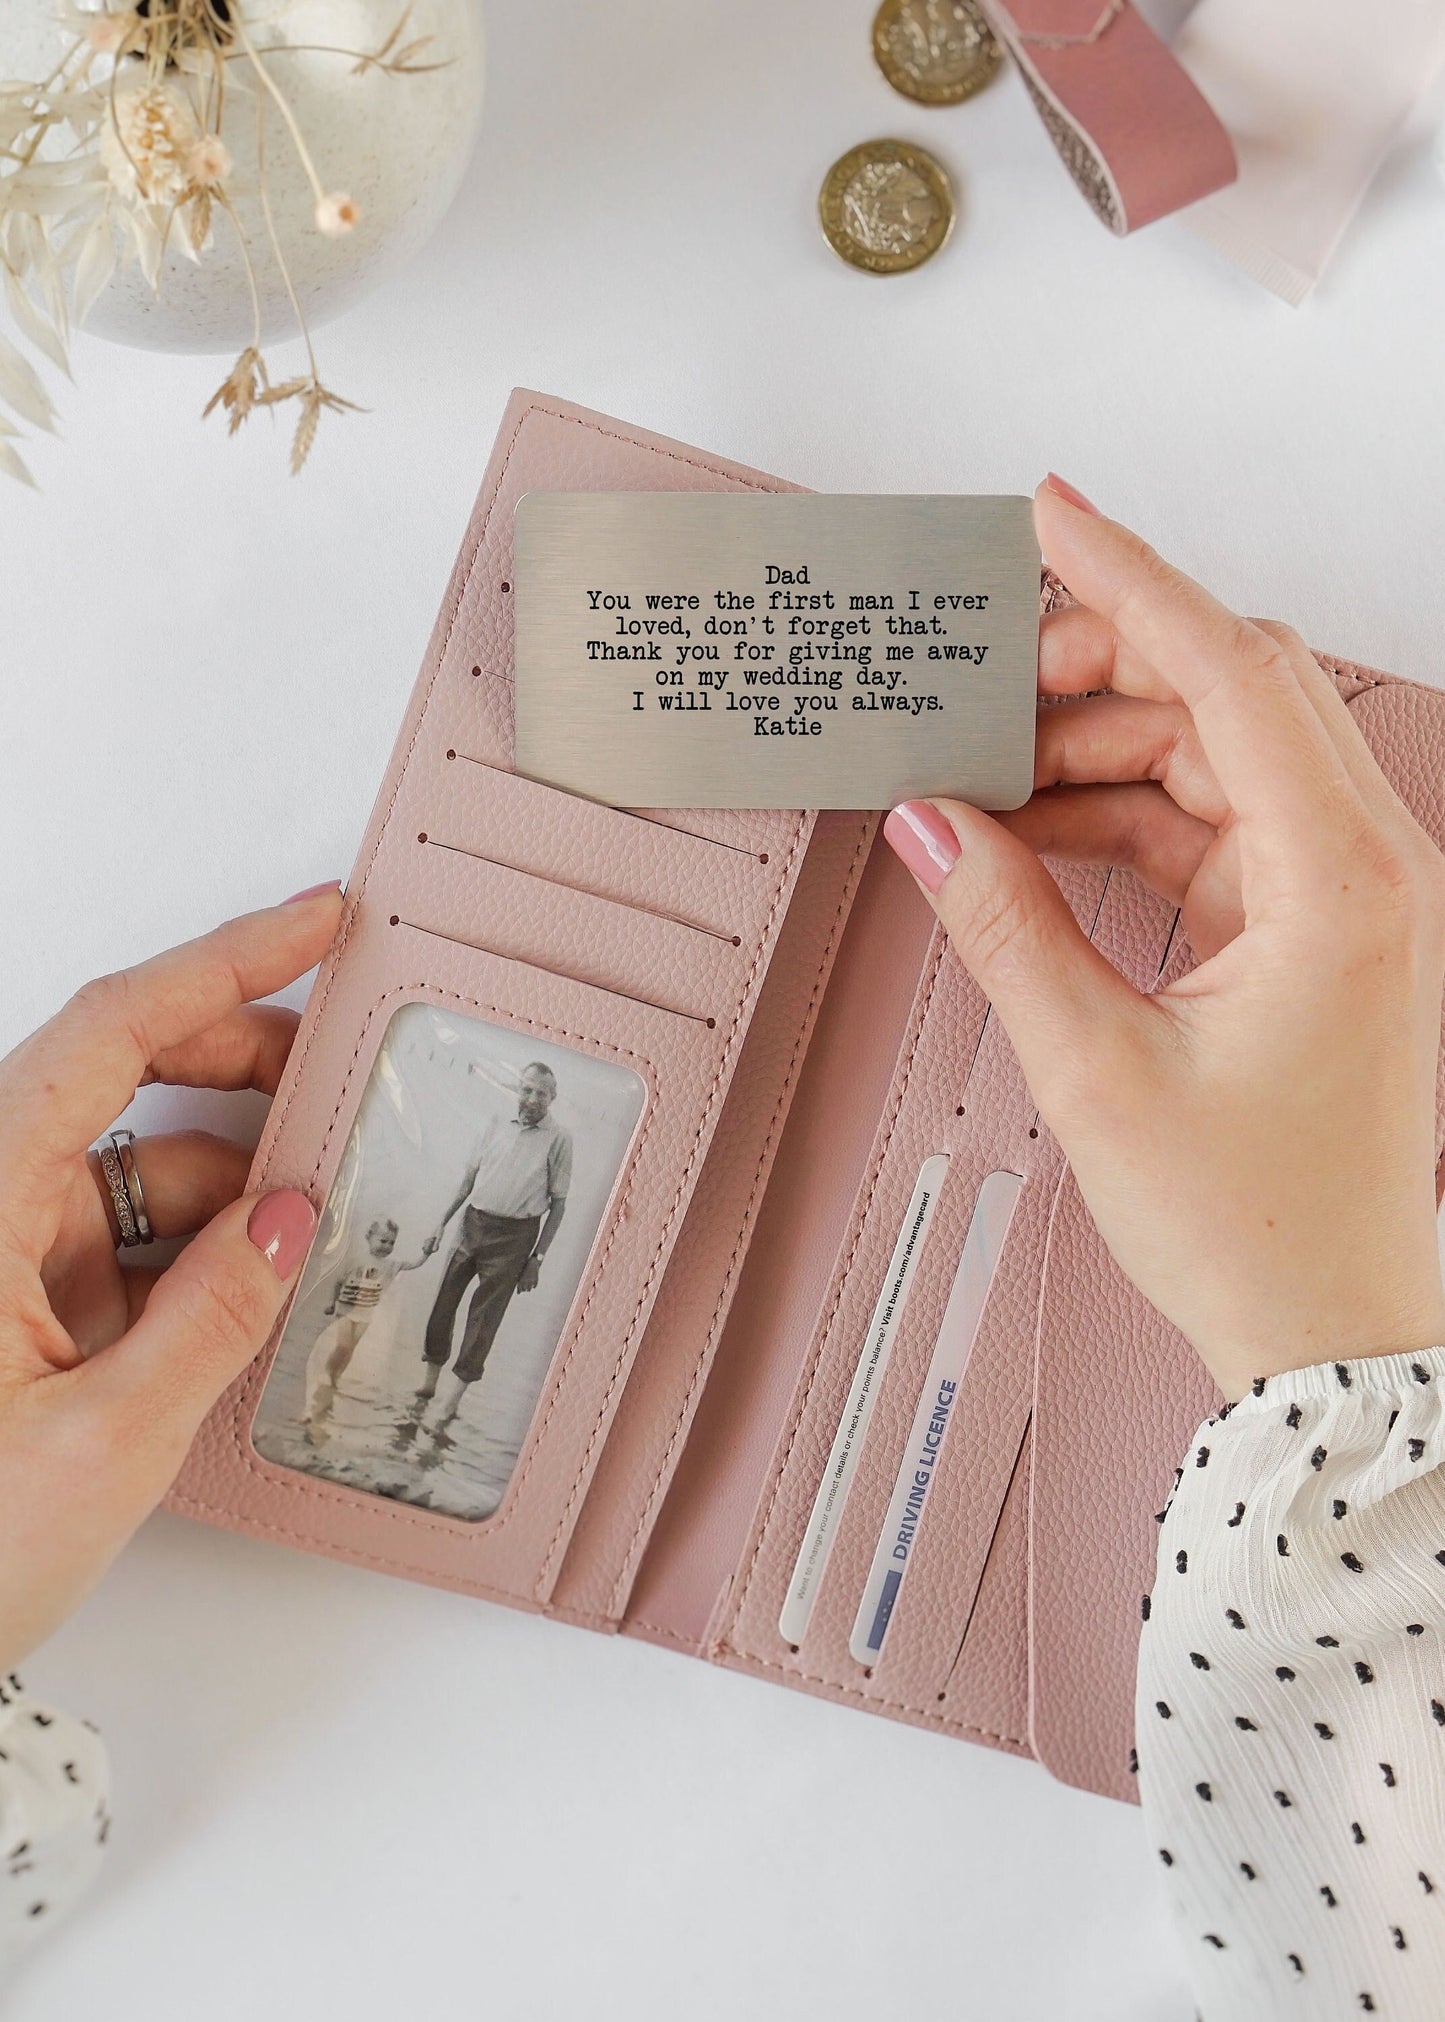 Dad
You were the first man I ever
loved, don't forget that.
Thank you for giving me away
on my wedding day.
I will love you always.
Katie
Want to change your contact details or check your points balance? Visit boots.com/advantagecard
DRIVING LICENCE